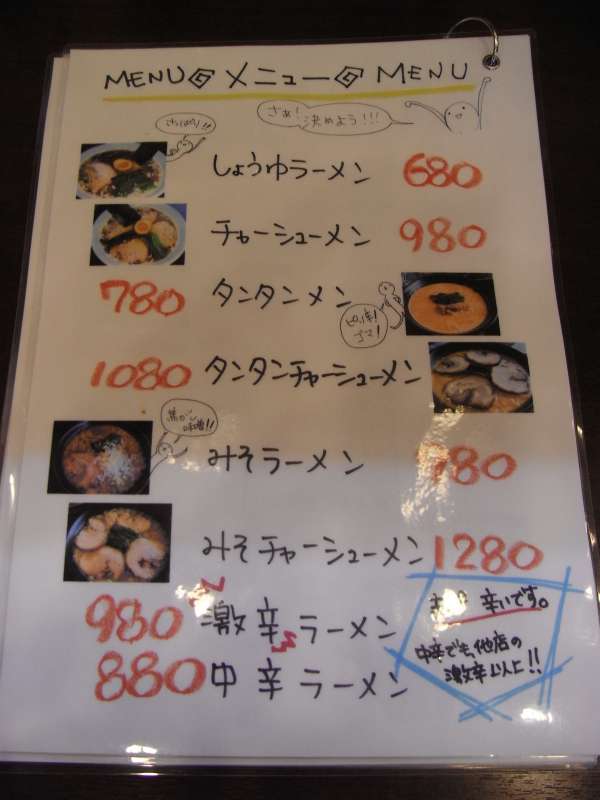 MENU メニュー MENU
さぁ!決めよう!!!
さっぱり!!
しょうゆラーメン 680
チャーシューメン 980
780 タンタンメン
ピリ辛!ゴマ!
1080 タンタンチャーシューメン
焦がし味噌!!
みそラーメン
みそチャーシューメン 1280
980 激辛ラーメン
辛いです。
880 中辛ラーメン
中辛でも、他店の
激辛以上!!